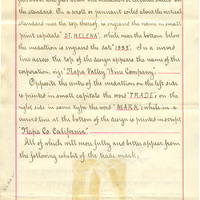 standard near the top thereof, is engraved the name in small
print capitals "ST. HELENA", while near the bottom below
the medallion is engraved the date "1883". In a curved
line across the top of the design appears the name of the
corporation, viz: "Napa Valley Wine Company".
Opposite the centre of the medallion on the left side
is printed in small capitals the word "TRADE"; on the
right side in same type the word "MARK"; while in a
curved line at the bottom of the design is printed in script
"Napa Co. California"
All of which will more fully and better appear from
the following exhibit of the trade mark;